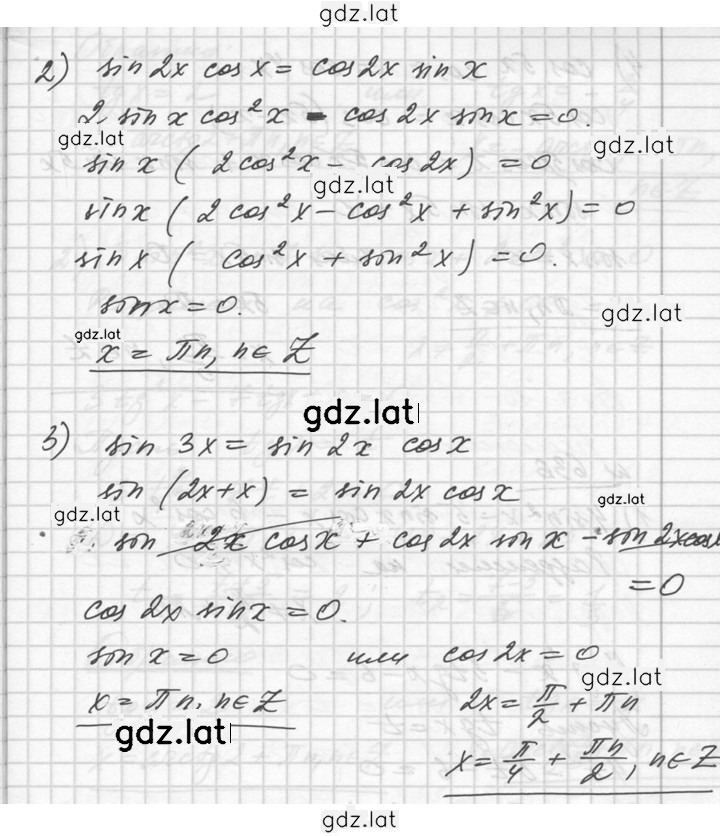 gdz.lat
2) sin 2x cos x = cos 2x sin x
2 sin x cos²x - cos 2x sin x = 0.
gdz.lat gdz.lat
sin x ( 2cos²x - cos 2x) = 0
gdz.lat
sin x ( 2 cos²x - cos²x + sin²x) = 0
sin x ( cos²x + sin²x) = 0.
sin x = 0.
gdz.lat
gdz.lat
x = πn, n ∈ Z
gdz.lat
3) sin 3x = sin 2x cos x
sin (2x+x) = sin 2x cos x
gdz.lat
gdz.lat
sin 2x cos x + cos 2x sin x - sin 2x cos
= 0
cos 2x sin x = 0.
sin x = 0 или cos 2x = 0
gdz.lat
x = πn, n ∈ Z 2x = π/2 + πn
gdz.lat
x = π/4 + πn/2, n ∈ Z
gdz.lat